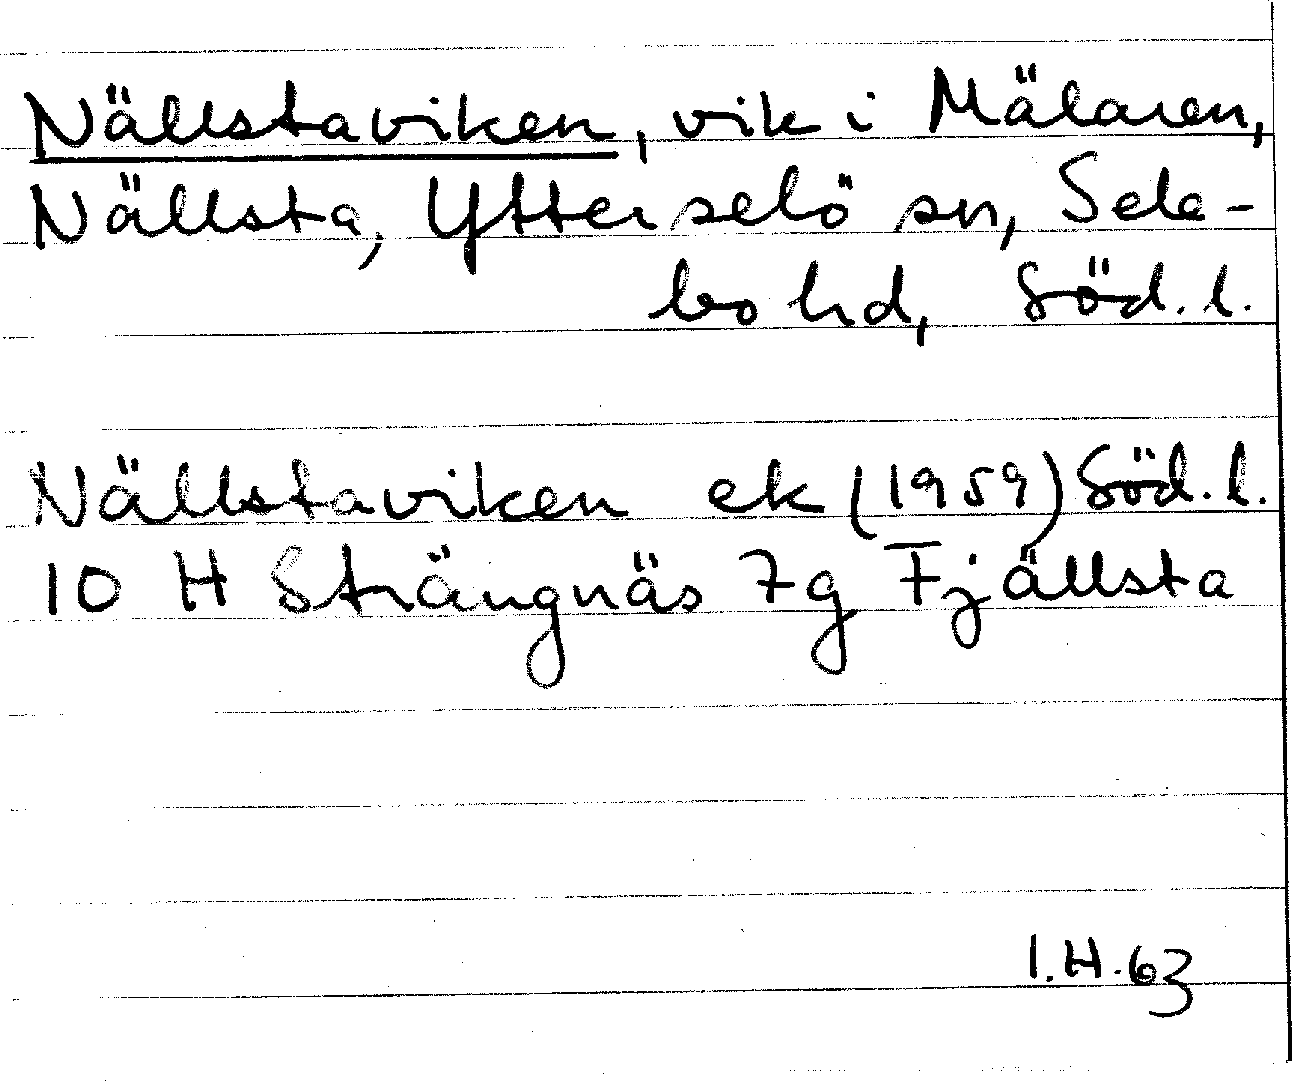 Nällstaviken, vik i Mälaren,
Nällsta, Ytterselö sn, Sela-
bo hd, Söd. l.
Nällstaviken ek (1959) Söd. l.
10 H Strängnäs 7g Fjällsta
I.H.63